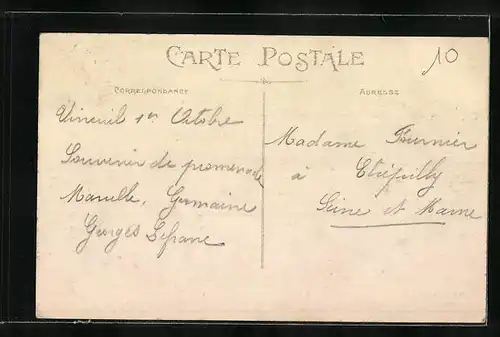 CARTE POSTALE
10
CORRESPONDANCE
ADRESSE
Vineuil 1er Octobre
Souvenir de promenade
Marcelle, Germaine
Georges Lefranc
Madame Fournier
à Etrépilly
Seine et Marne